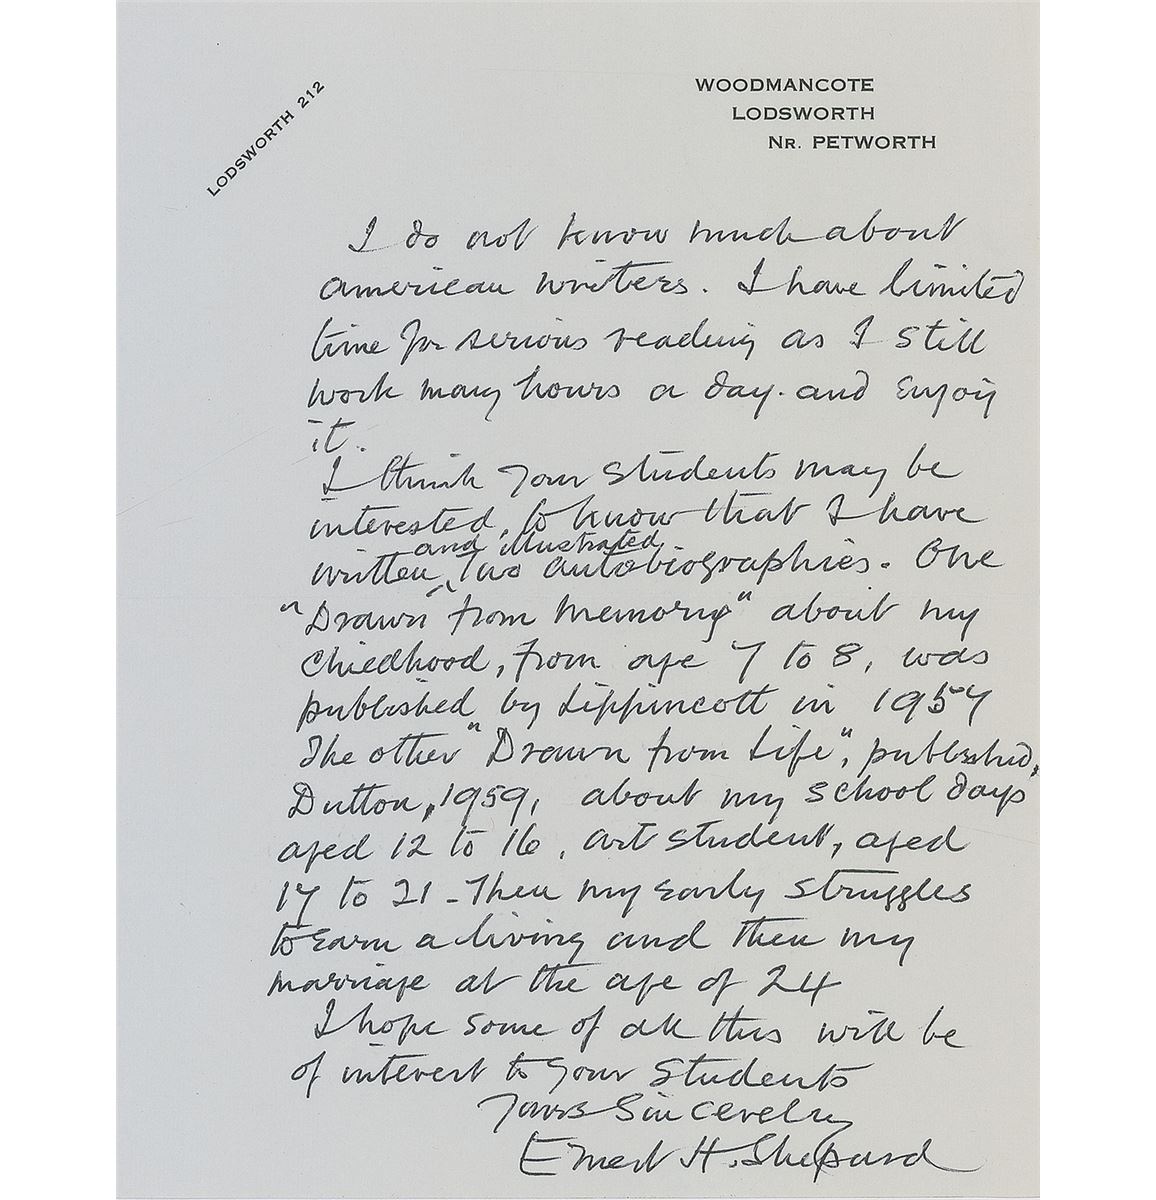 LODSWORTH 212
WOODMANCOTE
LODSWORTH
NR. PETWORTH
I do not know much about
american writers. I have limited
time for serious reading as I still
work many hours a day. and enjoy
it.
I think your students may be
interested, to know that I have
and illustrated
written ^ two autobiographies. One
"Drawn from Memory" about my
childhood, from age 7 to 8, was
published by Lippincott in 1957
The other "Drawn from Life", published,
Dutton, 1959, about my school days
aged 12 to 16, art student, aged
17 to 21 - Then my early struggles
to earn a living and then my
marriage at the age of 24
I hope some of all this will be
of interest to your students
Yours Sincerely
Ernest H. Shepard